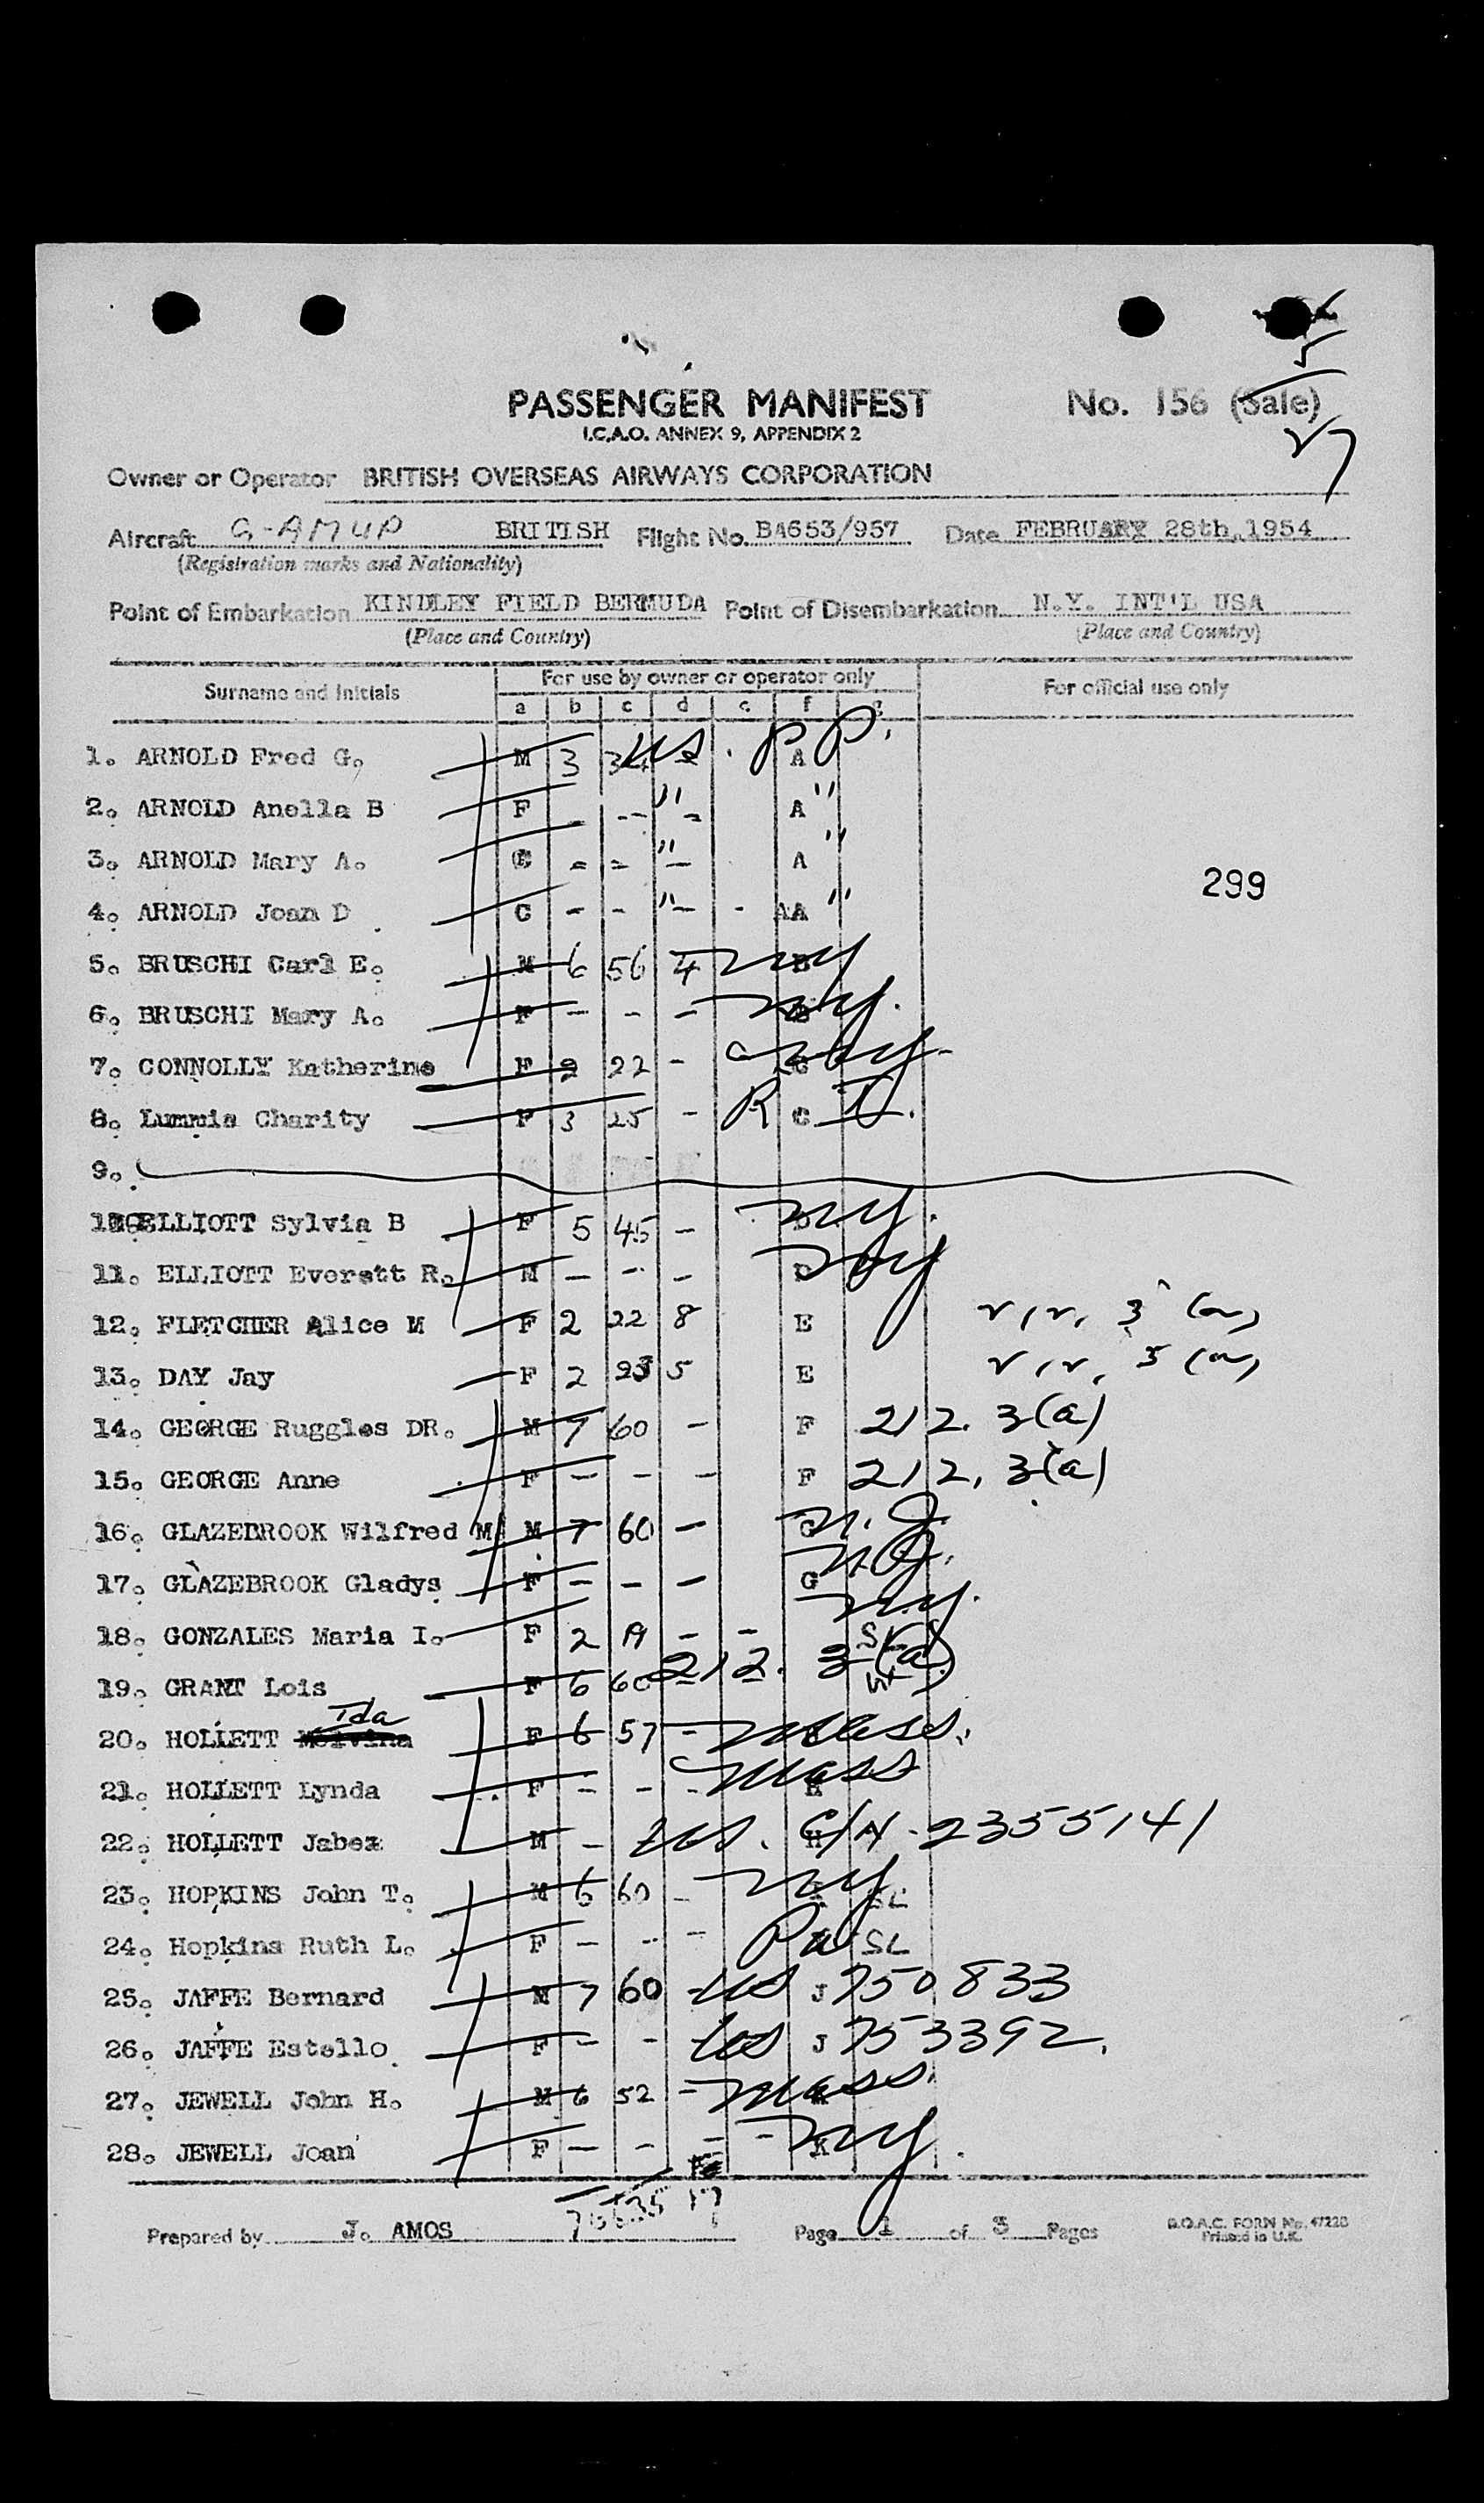 PASSENGER MANIFEST No. 156 (Sale)
I.C.A.O. ANNEX 9, APPENDIX 2
Owner or Operator BRITISH OVERSEAS AIRWAYS CORPORATION
Aircraft G-AMUP BRITISH Flight No. BA653/957 Date FEBRUARY 28th,1954
(Registration marks and Nationality)
Point of Embarkation KINDLEY FIELD BERMUDA Point of Disembarkation N.Y. INT'L USA
(Place and Country) (Place and Country)
Surname and Initials For use by owner or operator only For official use only
a b c d e f g
1. ARNOLD Fred G. M 3 34 US. PP. A
2. ARNOLD Anella B F - -- " - A "
3. ARNOLD Mary A. C - - " - A "
4. ARNOLD Joan D C - - " - - AA "
299
5. BRUSCHI Carl E. M 6 56 4 NY B
6. BRUSCHI Mary A. F - - - NY. B
7. CONNOLLY Katherine F 2 22 - NY C
8. Lummis Charity F 3 25 - R C I.
9.
10. ELLIOTT Sylvia B F 5 45 - NY. D
11. ELLIOTT Everett R. M - - - NY D
12. FLETCHER Alice M F 2 22 8 E
13. DAY Jay F 2 23 5 E
14. GEORGE Ruggles DR. M 7 60 - F 212. 3(a)
15. GEORGE Anne F - - - F 212, 3(a)
16. GLAZEBROOK Wilfred M M 7 60 - G N.J.
17. GLAZEBROOK Gladys F - - - G N.J.
18. GONZALES Maria I. F 2 19 - - NY. SL
19. GRANT Lois F 6 60 212. 3(a)
20. HOLLETT Ida F 6 57 - Mass.
21. HOLLETT Lynda F - - - Mass H
22. HOLLETT Jabez M - US. C/N H - 2355141
23. HOPKINS John T. M 6 60 - NY SL
24. Hopkins Ruth L. F - -- - Pa SL
25. JAFFE Bernard M 7 60 - US J 750833
26. JAFFE Estello F - - US J 753392.
27. JEWELL John H. M 6 52 - Mass.
28. JEWELL Joan F - - - - NY K
Prepared by J. AMOS Page 1 of 3 Pages B.O.A.C. FORM No. 4722B
Printed in U.K.